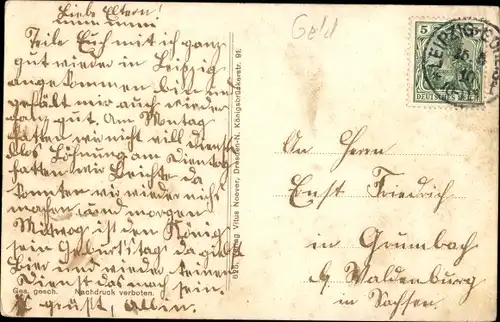 Liebe Eltern!
Teile Euch mit ich ganz
gut wieder in Leipzig
angekommen bin und
gefällt mir auch wieder
ganz gut. Am Montag
hatten wir nicht viel Dienst
blos Löhnung am Dienstag
hatten wir Beichte da
konnten wir wieder nichts
machen und morgen
Mittwog ist den König
sein Geburtstag da giebt
Bier und wieder keinen
Dienst das mach sein.
Es grüst, Albin.
Ges. gesch. Nachdruck verboten.
625, Verlag Vitus Noever, Dresden-N. Königsbrückerstr. 96.
Geld
5
DEUTSCHES REICH
LEIPZIG
An Herrn
Ernst Friedrich
in Grumbach
b/ Waldenburg
in Sachsen.